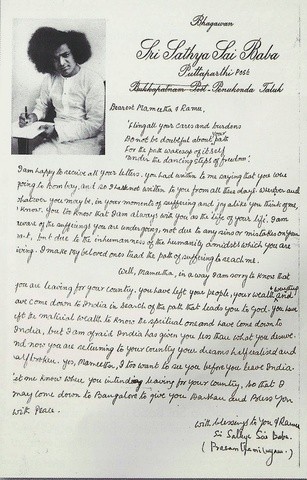 Bhagawan
Sri Sathya Sai Baba
Puttaparthi Post
Bukkapatnam Post - Penukonda Taluk
Dearest Mameetha & Ramu,
'Fling all your cares and burdens
Do not be doubtful about your path
For the path wakes up of itself
Under the dancing steps of freedom.'
I am happy to receive all your letters. You had written to me saying that you were
going to Bombay, and so I had not written to you from all these days. Wherever and
whatever you may be, in your moments of suffering and joy alike you think of me,
I know. You too know that I am always with you as the life of your life. I am
aware of the sufferings you are undergoing, not due to any sins or mistakes on your
part, but due to the inhumaneness of the humanity amidst which you are
living. I make my beloved ones tread the path of suffering to reach me.
Well, Mameetha, in a way I am sorry to know that
you are leaving for your country, you have left your people, your wealth and everything
have come down to India in search of the path that leads you to God. You have
left the material wealth to know the spiritual one and have come down to
India, but I am afraid India has given you less than what you deserve.
And now you are returning to your country your dreams half realised and
half broken. Yes, Mameetha, I too want to see you before you leave India.
Let me know when you intend leaving for your country, so that I
may come down to Bangalore to give you Darshan and Bless you
with Peace.
With blessings to You & Ramu
Sri Sathya Sai Baba.